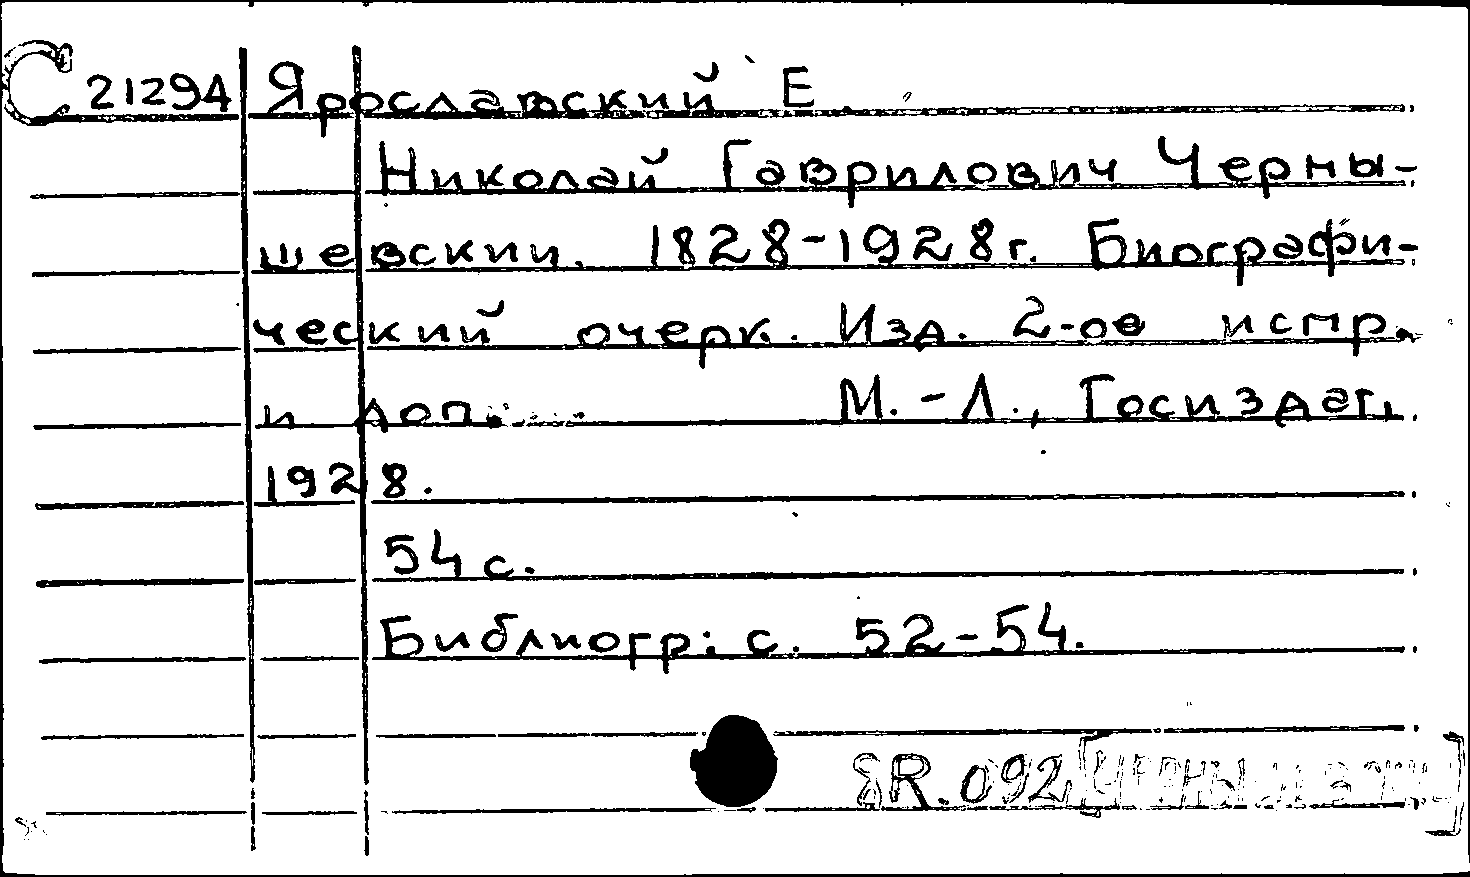 С 21294 Ярославский Е.
Николай Гаврилович Черны-
шевский. 1828-1928г. Биографи-
ческий очерк. Изд. 2-ое испр.
и доп. М.-Л., Госиздат,
1928.
54 с.
Библиогр: с. 52-54.
8R.092